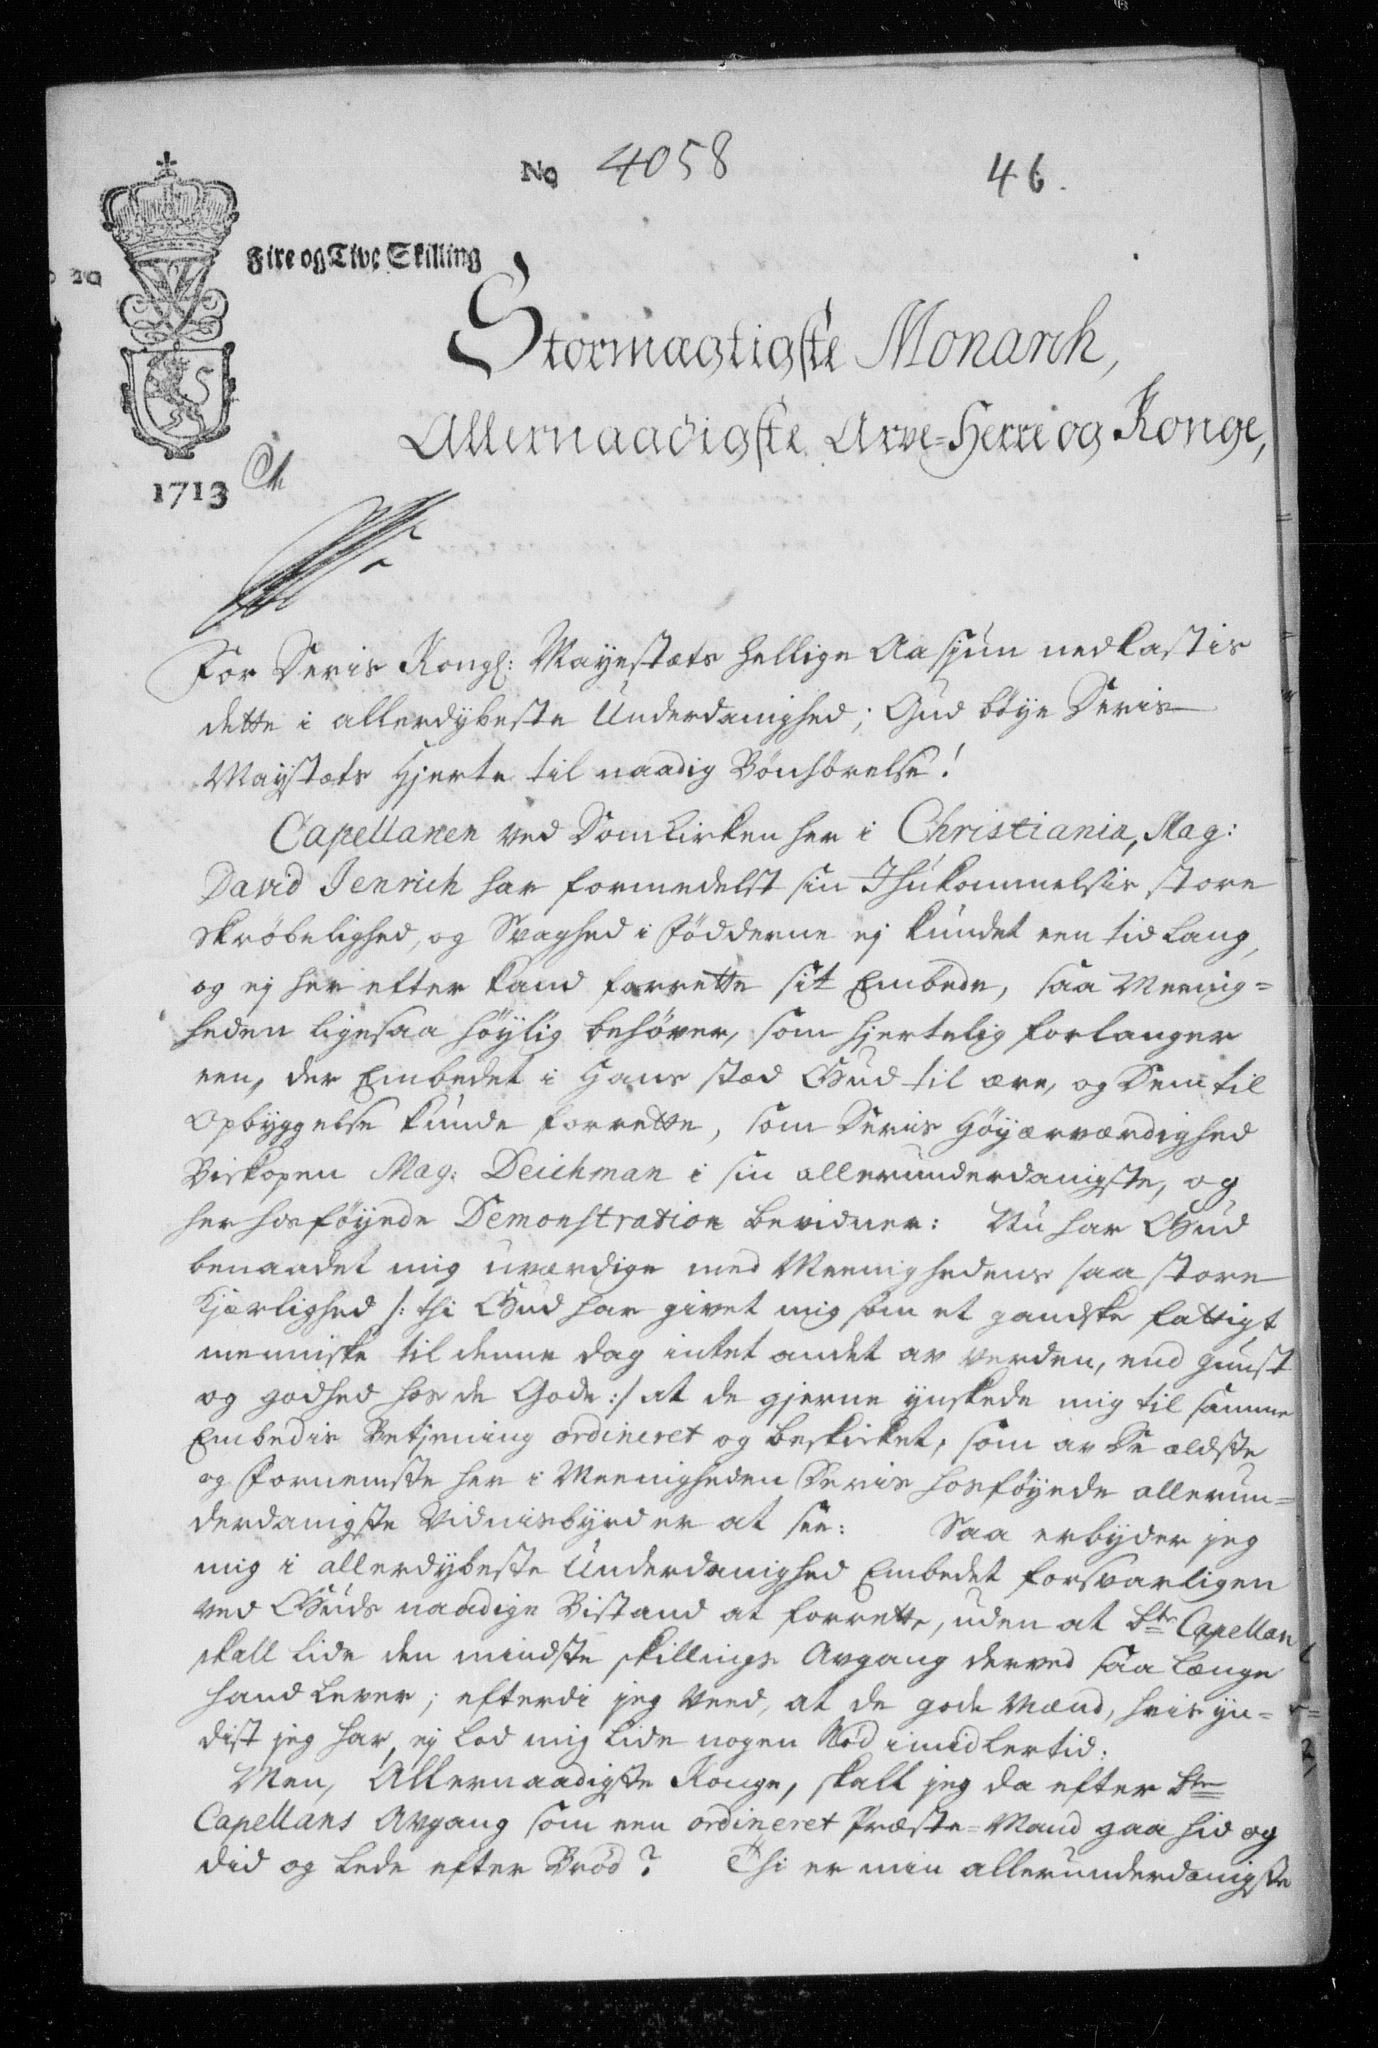 No 4058
46.
Fire og Tive Skilling
20
Stormægtigste Monarch,
Allernaadigste Arve-Herre og Konge,
1713
For Deris Kongl: Mayestæts hellige Aasjun nedkastis
dette i allerdybeste Underdanighed; Gud böye Deris
Mayestæts Hjerte til naadig Bönhörelse!
Capellanen ved Domkirken her i Christiania, Mag:
David Jenrich har formedelst sin Ihukommelsis store
skröbelighed, og Svaghed i Födderne ej kundet een tid lang,
og ej her efter kand forrette sit Embede, saa Meenig=
heden ligesaa höylig behöver, som hjertelig forlanger
een, der Embedet i Hans stæd Gud til ære, og Dem til
Opbyggelse kunde forrette, som Deris Höyærværdighed
Biskopen Mag: Deichman i sin allerunderdanigste, og
her hosföyede Demonstration bevidner: Nu har Gud
benaadet mig uværdige med Meenighedens saa store
Kjærlighed /: thi Gud har givet mig som et gandske fattigt
menniske til denne dag intet andet av verden, end gunst
og godhed hos de Gode :/ at de gjerne ynskede mig til samme
Embedis Betjening ordineret og beskicket, som av De ældste
og Fornemste her i Meenigheden Deris hosföyede allerun=
derdanigste Vidnisbyrd er at see: Saa erbyder jeg
mig i allerdybeste Underdanighed Embedet forsvarligen
ved Guds naadige Bistand at forrette, uden at bte Capellan
skall lide den mindste skillings Avgang derved saa længe
hand lever; efterdi jeg veed, at de gode Mænd, hvis yn=
dist jeg har, ej lod mig lide nogen Nöd imidlertid.
Men, Allernaadigste Konge, skall jeg da efter bte
Capellans Avgang som een ordineret Præste-Mand gaa hid og
did og lede efter Bröd? Thi er min allerunderdanigste